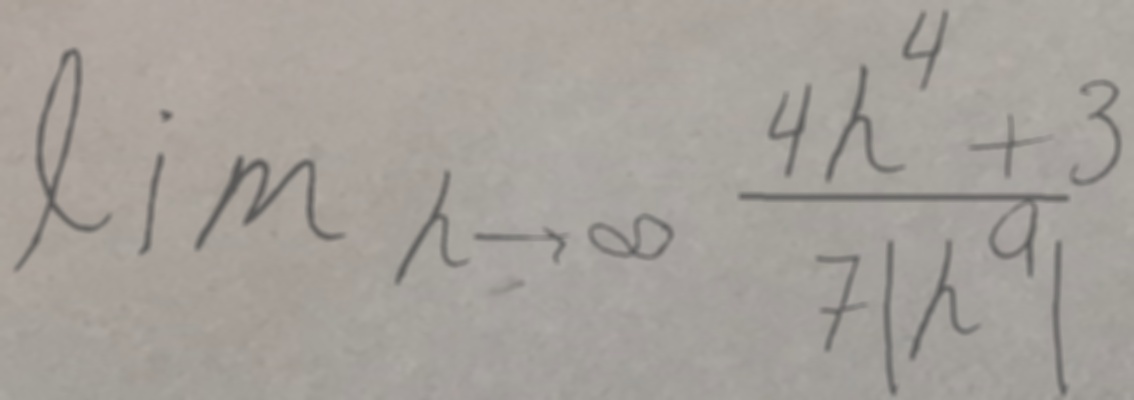 lim h→∞ \frac{4h^4 + 3}{7|h^9|}